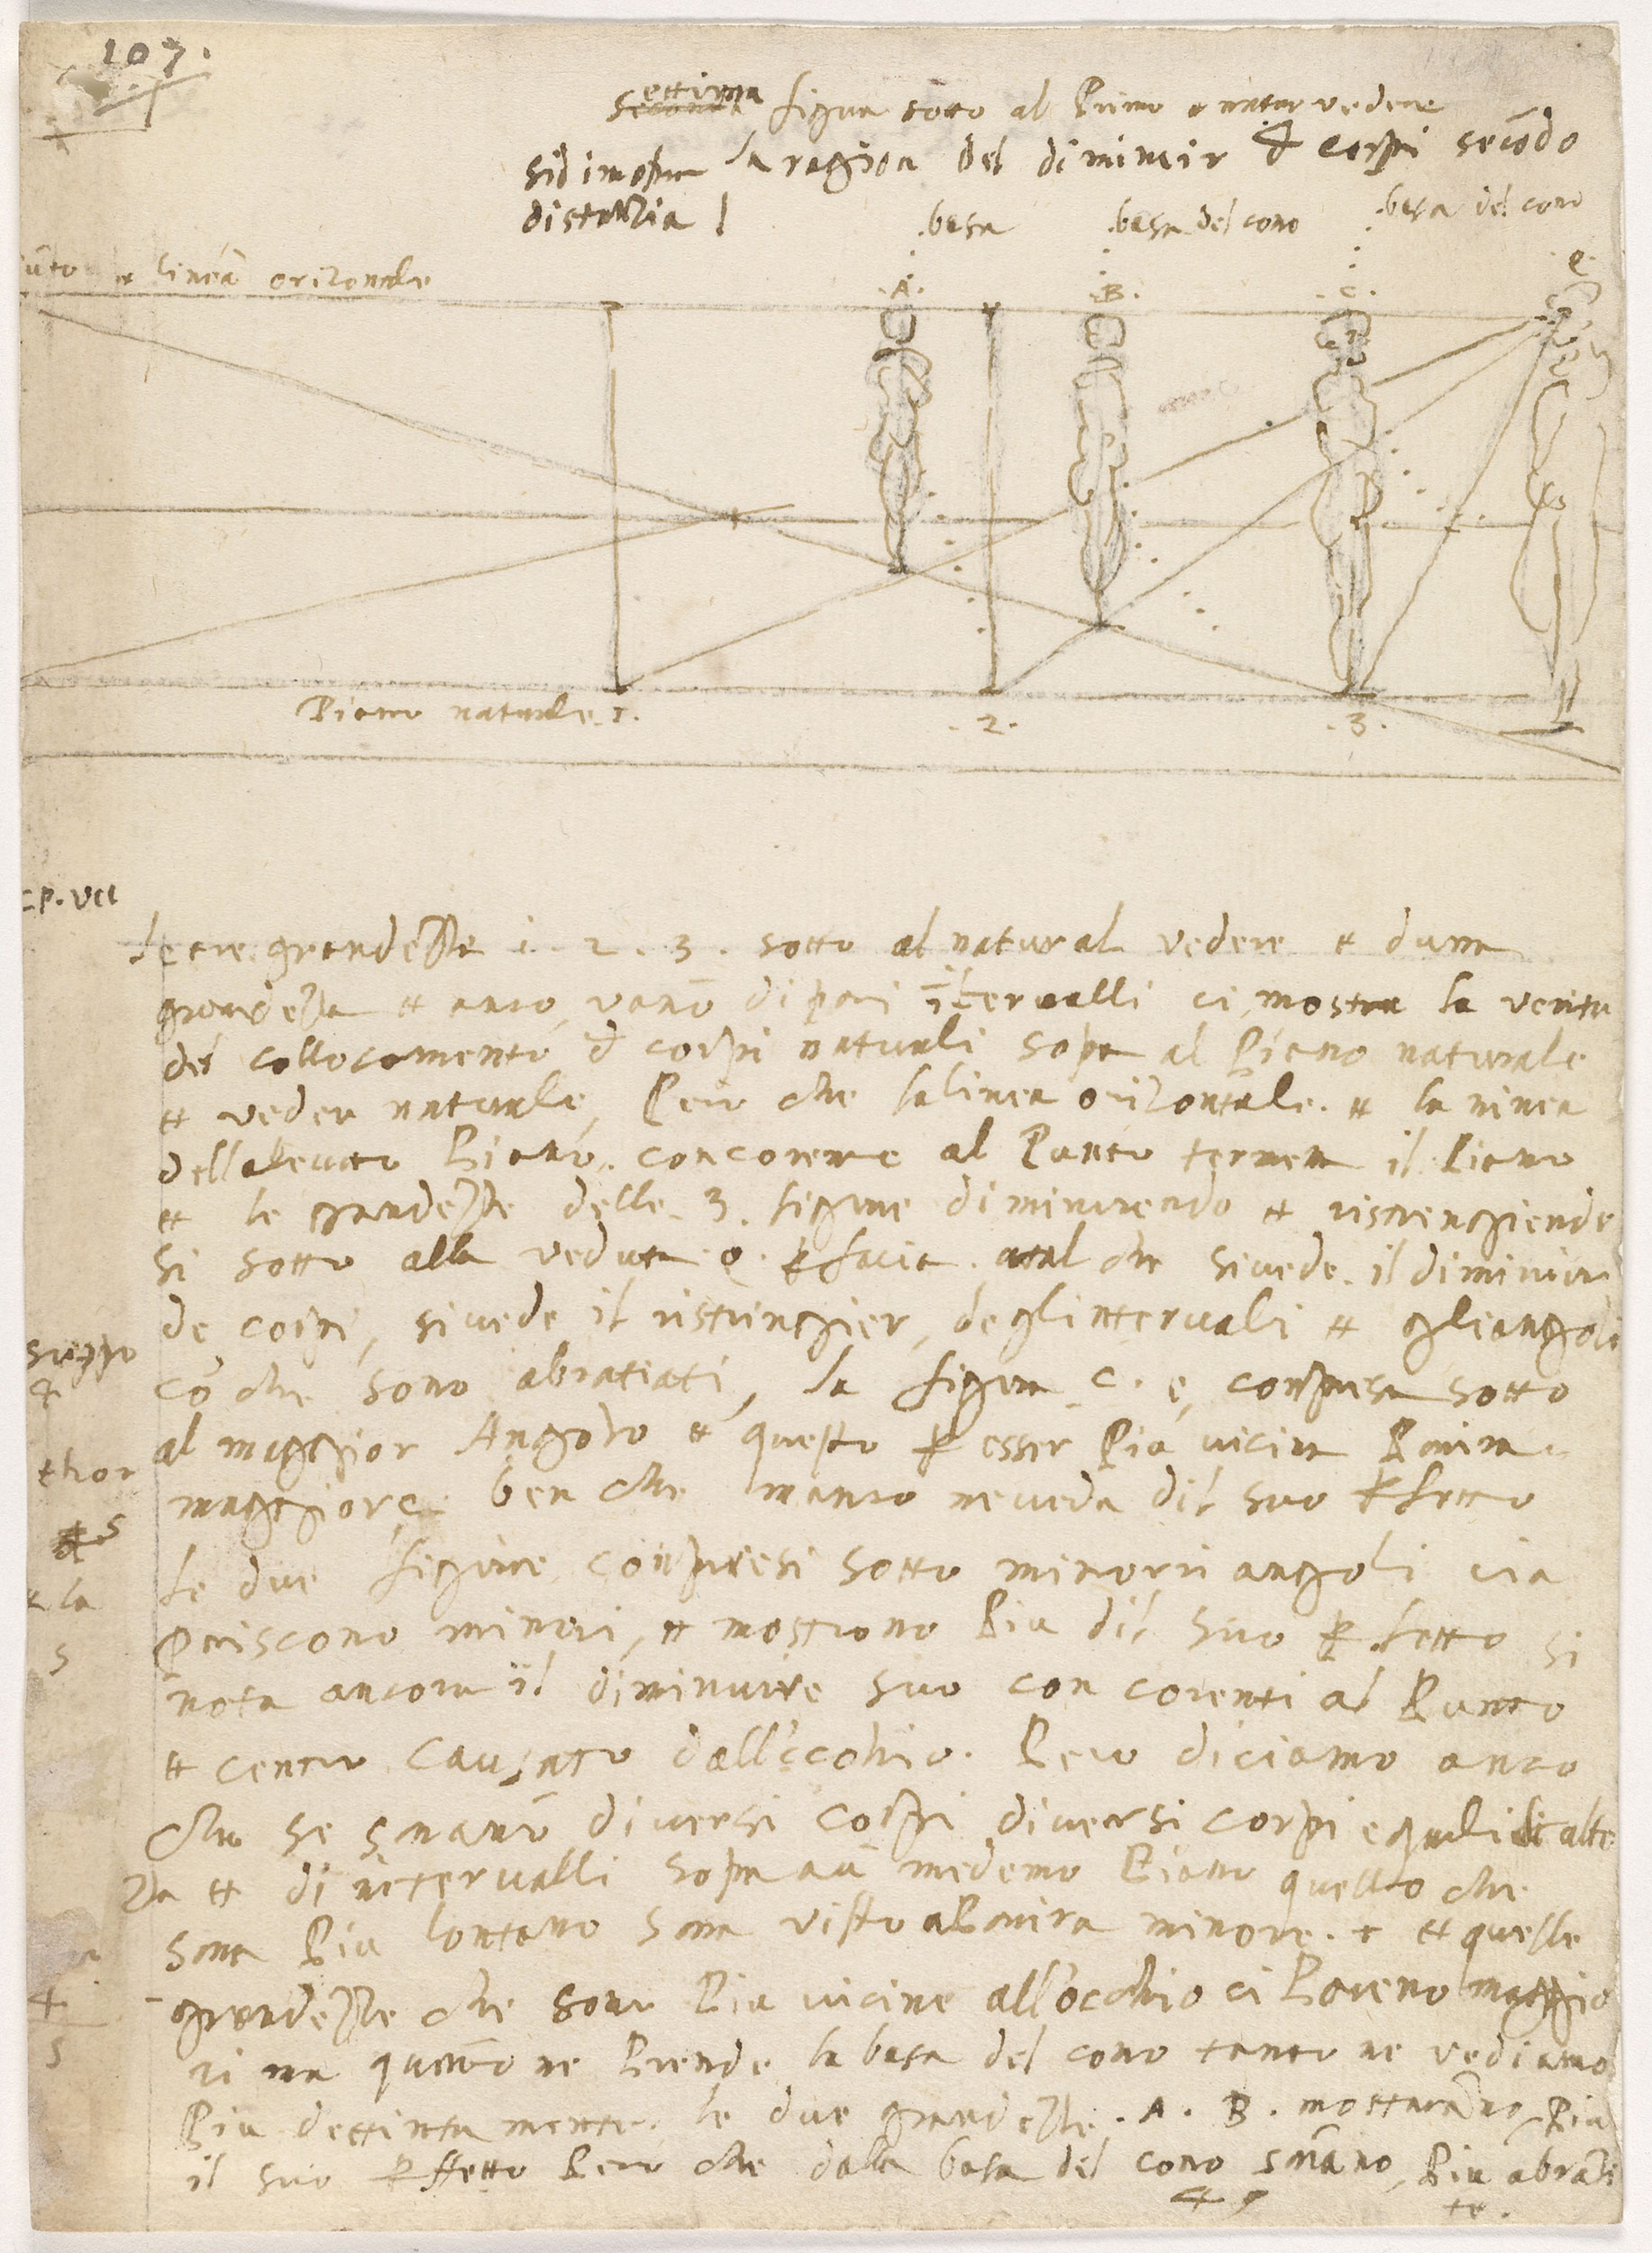 107.
settima figura sotto al Primo et natur vedere
si dimostra la ragion del diminuir d corpi secōdo
distanzia
.basa
.basa del cono
.basa del cono
linea orizontale
.A.
.B.
.C.
e
Piano naturale .1.
.2.
.3.
CP. VII
le tre grandezze 1 . 2 . 3 . sotto al natural vedere et d'una
grandezza et anco vano di pari intervalli ci mostra la verita
del collocamento d corpi naturali sopra al Piano naturale
et veder naturale, Pero che la linea orizontale. et la linea
dell alevato Piano. concorente al Punto il Piano
et le grandezze delle .3. figure diminuendo et ristrengiende
si sotto alla veduta .e. atal che si vede. il diminuir
de corpi, si vede il ristringier, degl intervali et gli angoli
cō che sono abratiati, la figura .C. e, compresa sotto
al maggior Angolo et questo ꝑ esser Piu vicina
maggiore ben che manco ne veda dil suo ꝑfetto
le due figure compresi sotto minori angoli cia
pariscono minori, et mostrono Piu dil suo ꝑfetto si
nota ancora il diminuire suo con corenti al Punto
et centro causato dall'occhio. Pero diciamo anco
che se sarano diversi corpi diversi corpi equali di alte
zza et di intervalli sopra a ū medemo Piano quello che
sara Piu lontano sara visto minore. et quelle
grandezze che sono Piu vicine all'occhio ci Pareno maggio
ri ma quanto ne Prende la basa del cono tanto ne vediamo
Piu destintamente. le due grandezze .A. B. mostrarāno Piu
il suo ꝑffetto Pero che dalla basa del cono sarāno Piu abratia
te.
suppo
4
et la
5
4
5